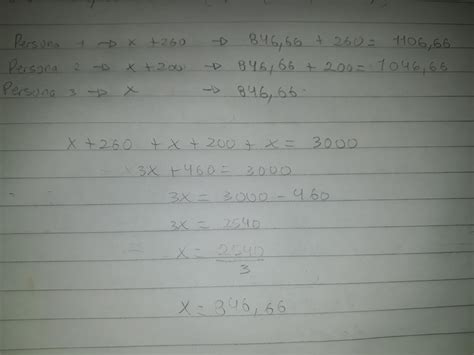 Persona 1 → x + 260 → 846,66 + 260 = 1106,66
Persona 2 → x + 200 → 846,66 + 200 = 1046,66
Persona 3 → x → 846,66
x + 260 + x + 200 + x = 3000
3x + 460 = 3000
3x = 3000 - 460
3x = 2540
x = 2540
3
x = 846,66